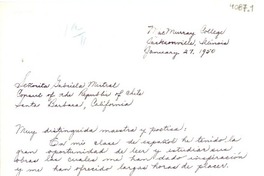 MacMurray College
Jacksonville, Illinois
January 27, 1950
Señorita Gabriela Mistral
Consul of the Republic of Chile
Santa Barbara, California
Muy distinguida maestra y poetisa:
En mi clase de español he tenido la
gran oportunidad de leer y estudiar sus
obras las cuales me han dado inspiración
y me han ofrecido largas horas de placer.